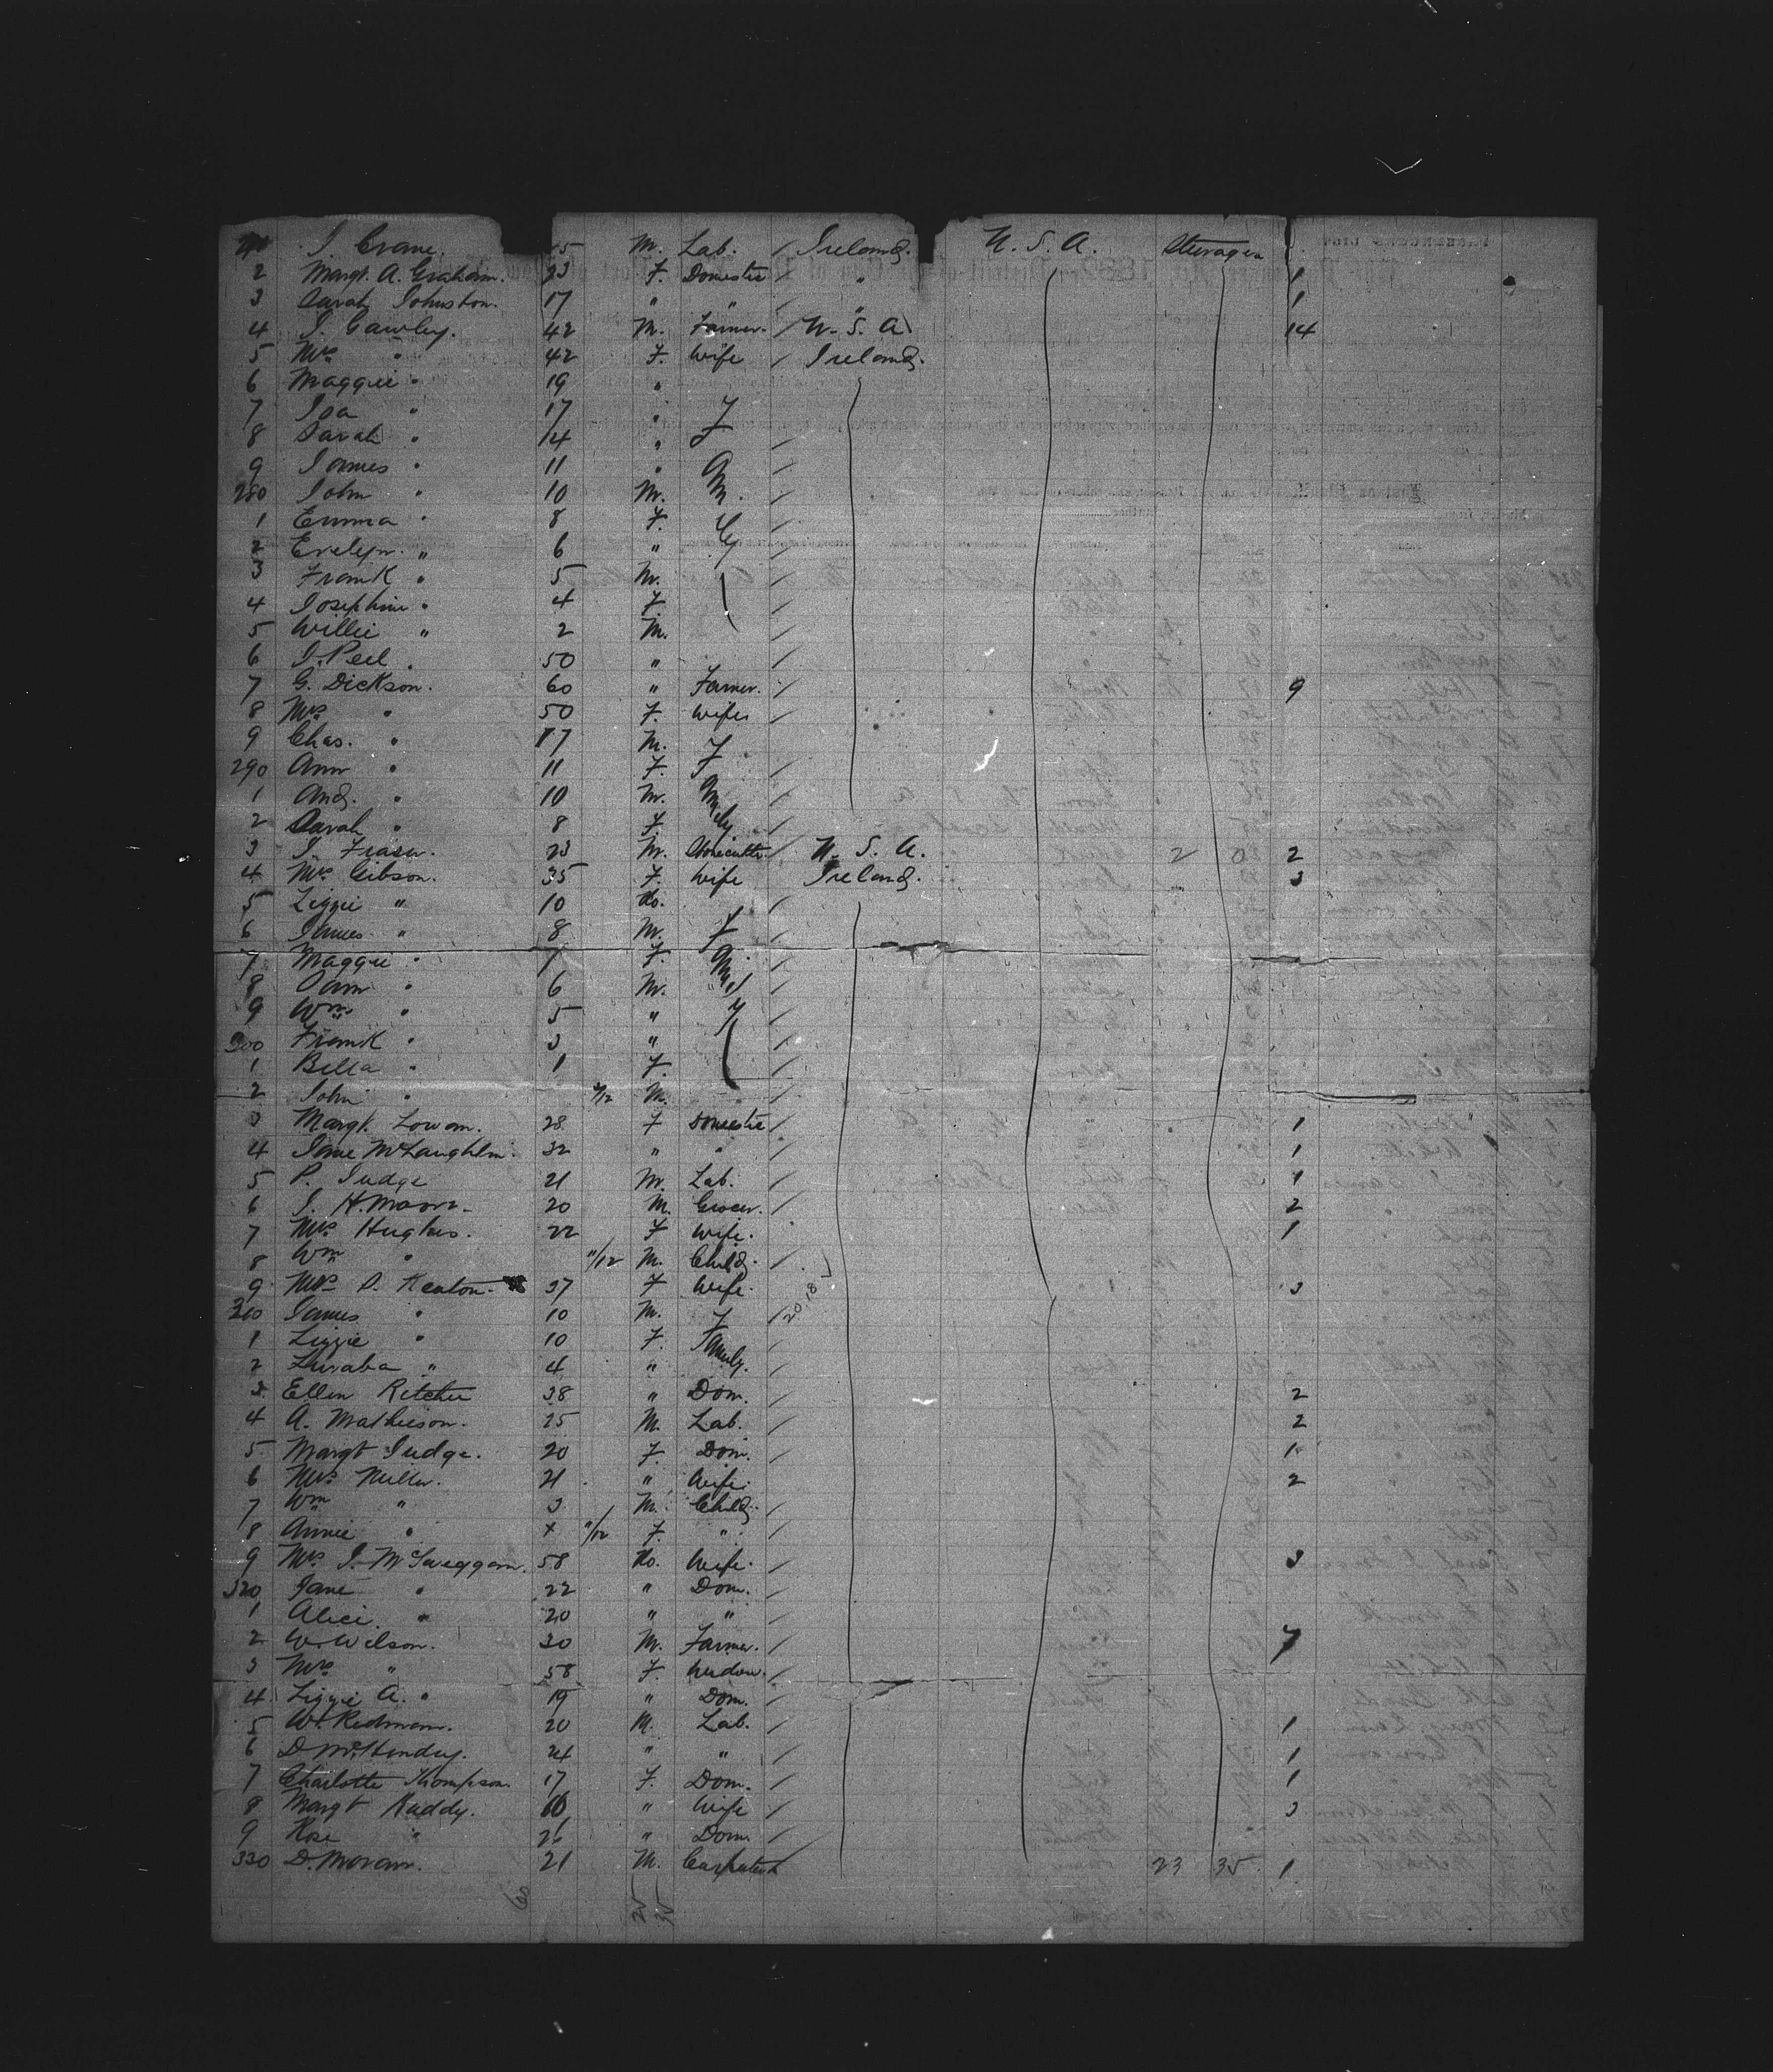 J Crane. M. Lab. / Ireland. U. S. A. Steerage
2 Margt. A. Graham. 23 F. Domestic / " 1
3 Sarah Johnston. 17 " " / " 1
4 J. Gawley. 42 M. Farmer. / U. S. A 14
5 Mrs " 42 F. Wife / Ireland.
6 Maggie " 19 "
7 Isa " 17 "
8 Sarah " 14 " /
9 James " 11 " /
280 John " 10 M. /
1 Emma " 8 F. /
2 Evelyn " 6 " /
3 Frank " 5 M. /
4 Josephine " 4 F. /
5 Willie " 2 M. /
6 J. Peel . 50 " /
7 G. Dickson. 60 " Farmer. / 9
8 Mrs " 50 F. Wife /
9 Chas. " 17 M. /
290 Ann " 11 F. /
1 And. " 10 M. /
2 Sarah " 8 F. /
3 J. Fraser. 23 M. Stonecutter U. S. A. 2 0 2
4 Mrs Gibson. 35 F. Wife Ireland. 3
5 Lizzie " 10 do. /
6 James " 8 M. /
7 Maggie " 7 F. /
8 Sam " 6 M. /
9 Wm " 5 " /
300 Frank " 3 " /
1 Bella " 1 F. /
2 John " /12 M. /
3 Margt. Lowan. 28 F Domestic / 1
4 Jane McLaughlin. 32 " " / 1
5 P. Judge 21 M. Lab. / 1
6 J. H. Moore. 20 M. Grocer. / 2
7 Mrs Hughes. 22 F Wife. 1
8 Wm " 11/12 M. Child. /
9 Mrs D. Keaton. 37 F Wife. 3
310 James " 10 M. / 20 18
1 Lizzie " 10 F. Family.
2 " 4 " /
3 Ellen Ritchie 38 " Dom. / 2
4 A. Mathieson. 25 M. Lab. / 2
5 Margt Judge. 20 F. Dom. / 1
6 Mrs Miller. 21 " Wife. 2
7 Wm " 3 M. Child. /
8 Annie " + 11/12 F. " /
9 Mrs J. McSweggan. 58 do. Wife. / 3
320 Jane " 22 " Dom. /
1 Alice " 20 " " /
2 W. Wilson. 30 M. Farmer. / 7
3 Mrs " 58 F. Widow. /
4 Lizzie A. " 19 " Dom. /
5 W. Redman. 20 M. Lab. / 1
6 D McHendry. 24 " " / 1
7 Charlotte Thompson. 17 F. Dom. / 1
8 Margt Ruddy. 60 " Wife / 3
9 Rose " 26 " Dom. /
330 D. Moran. 21 M. Carpenter 23 35 1
60 25 35